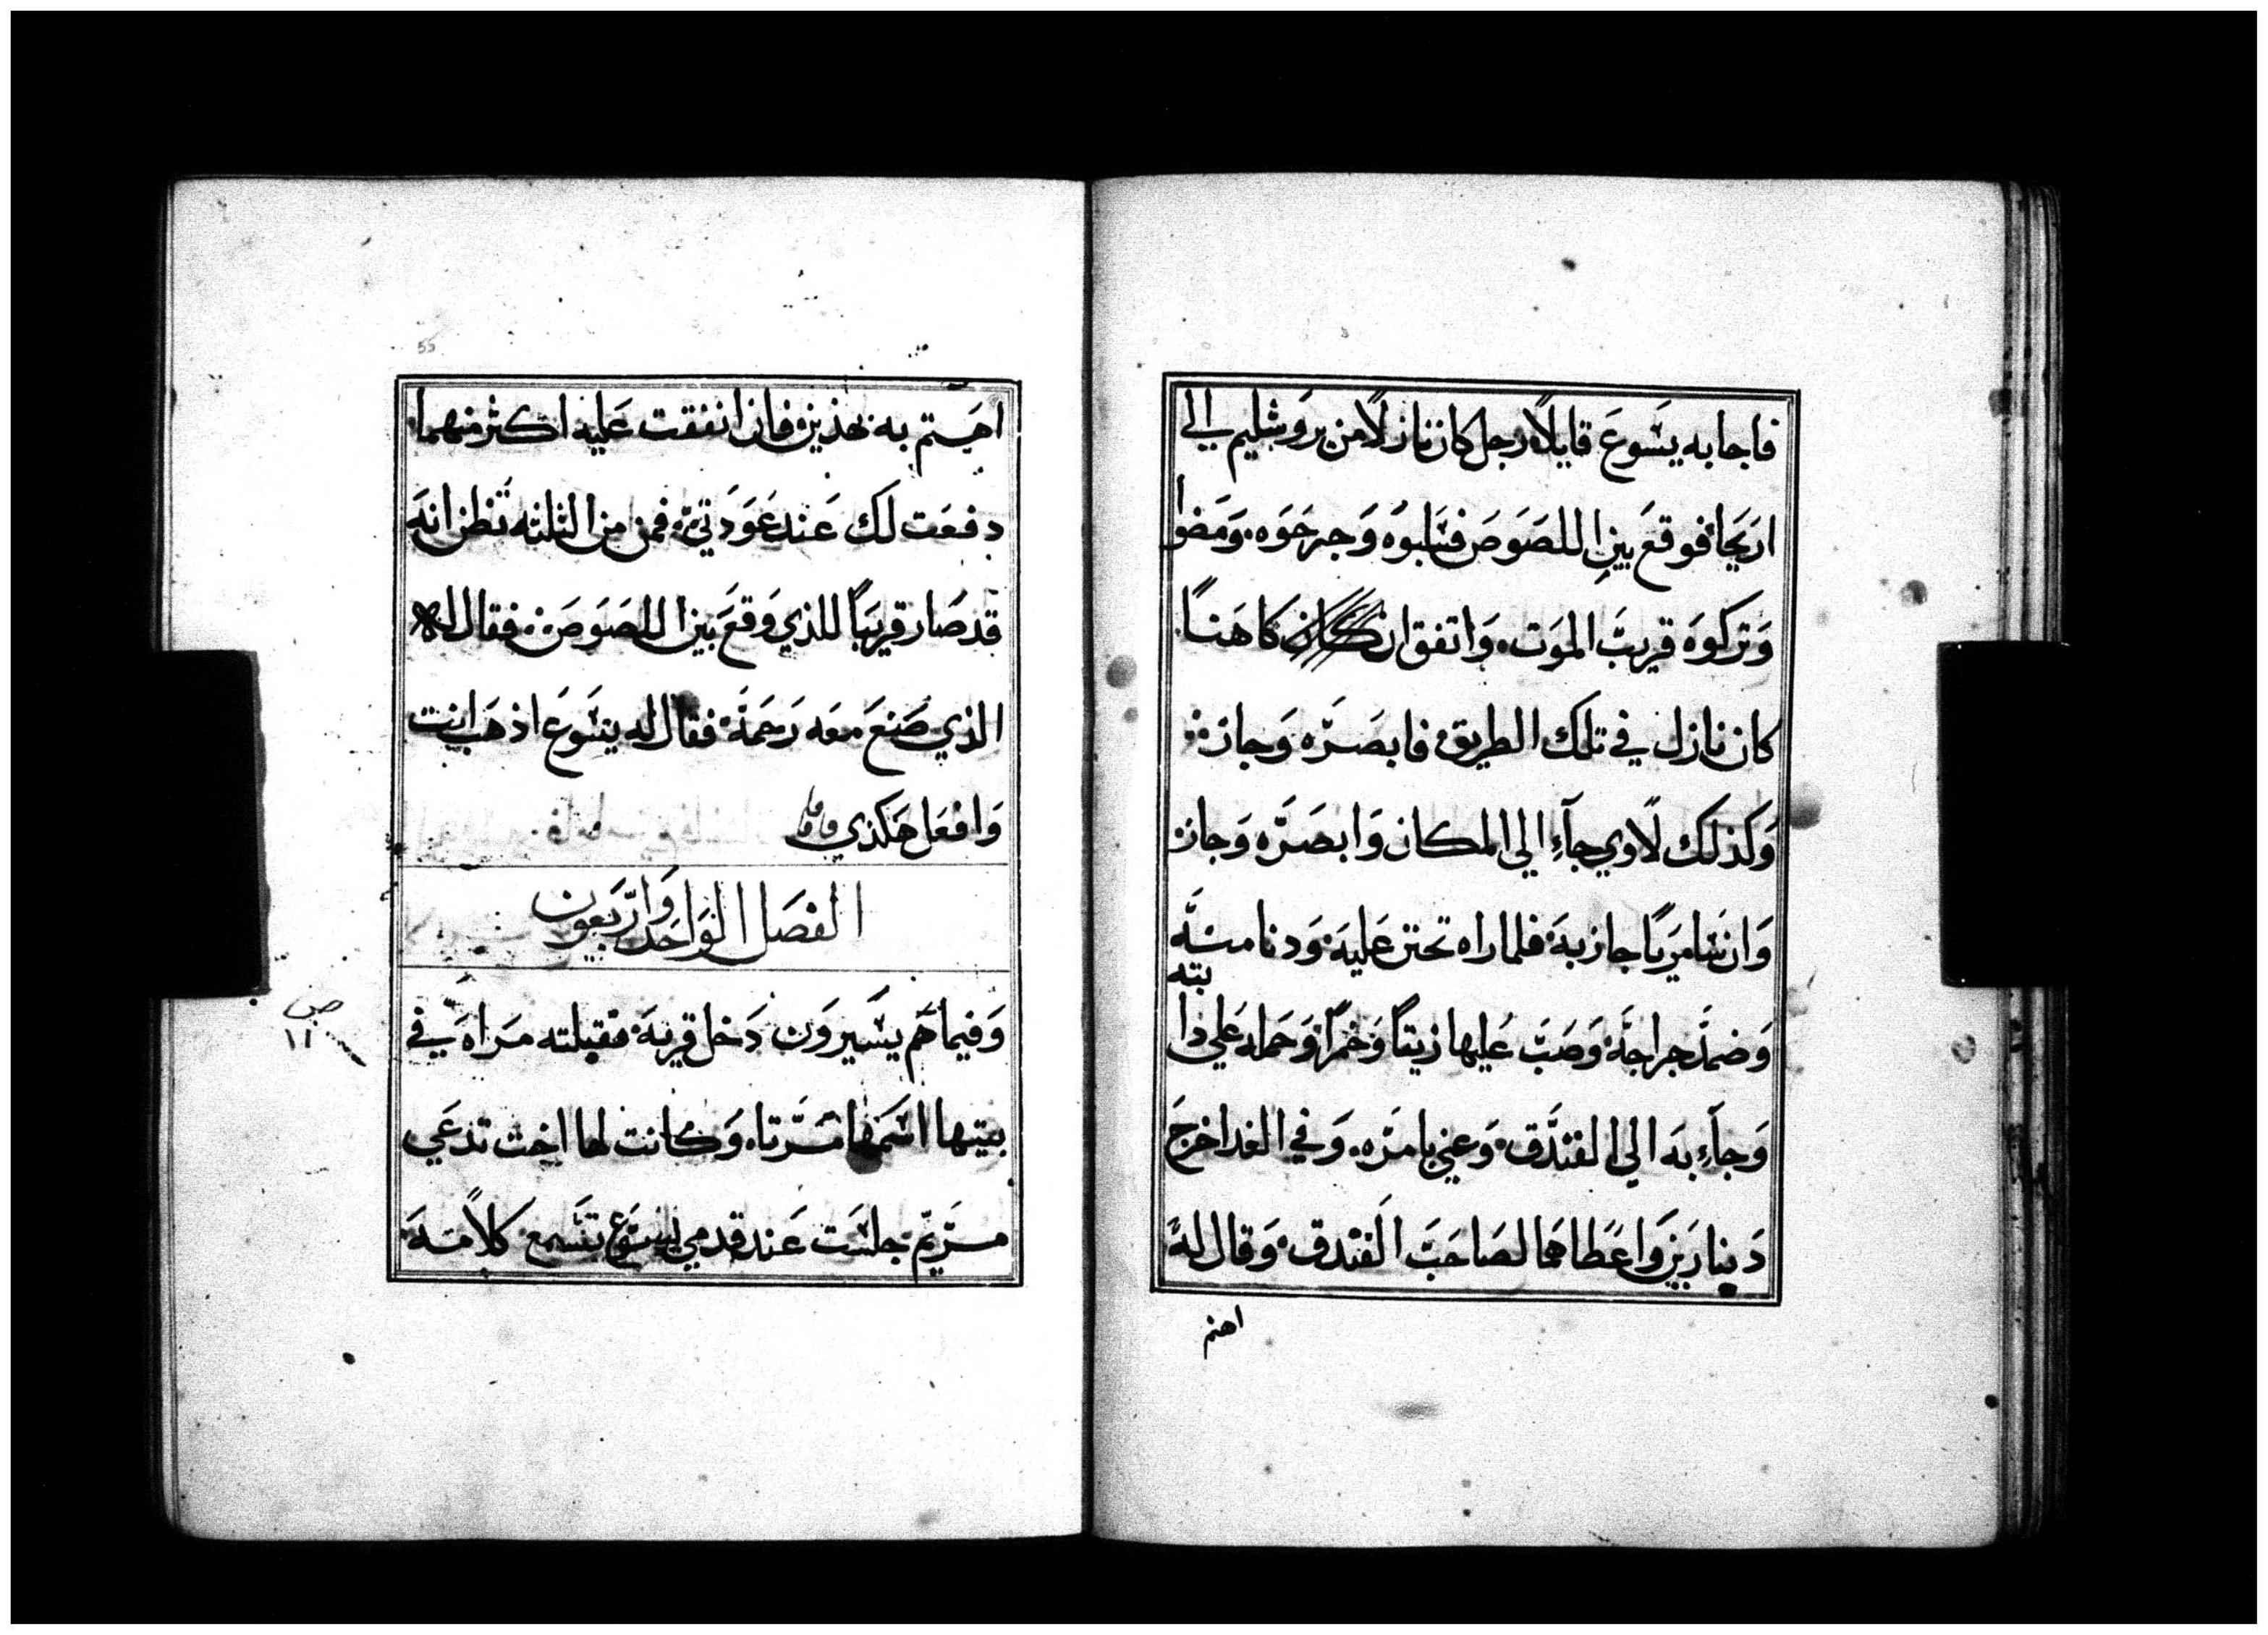 فاجابه يسَوعَ قايلاً رجل كان نازلاً من يروَشليم الي
ارَيَحا فوقعَ بين اللصَوصَ فسَلبوُه وَجرحَوَه. وَمَضوا
وَتركوَه قريبَّ الموَت. وَاتفق ان كان كاهَناً
كان نازل في تلك الطريق فابصَرَه وَجاز
وَكذلك لاًوي جآءِ الي المكان وَابصَرَه وَجاز
وَان سَامرَياً جاز به فلما راه تحنن عَليه وَدنا منه
وَضمدَّ جراحَة وَصَبَّ عَليها زيتاً وَخمراً وَحمله عَلي دا
بته
وَجآءِ به الي الفندَّق وَعني بامرَه. وَفي الغد اخرجَ
دَينارَين وَاعَطاهما لصَاحَبَ الفندق وَقال له
اهتم
55
اهَتم به بهذين فان انفقت عَليه اكثر منهما
دفعَت لك عَند عَوَدَتي فمن من الثلثه تَظن انه
قد صَار قريبَاً للذي وَقعَ بين اللصَوصَ فقال له
الذي صَنعَ معَه رَحَمة فقال له يسَوعَ اذهَب انت
وَافعَل هَكذي
الفصَل الوَاحَد وَارّبَعون
وَفيما هَم يسَيروَن دَخل قرية فقبلته مَراهَ في
بيتها اسَمهَا مَرَتا. وَكانت لها اخت تدعَي
مَرَيم جلسَت عَند قدمي يسَوَع تسَمع كلاًمه
صح
١١